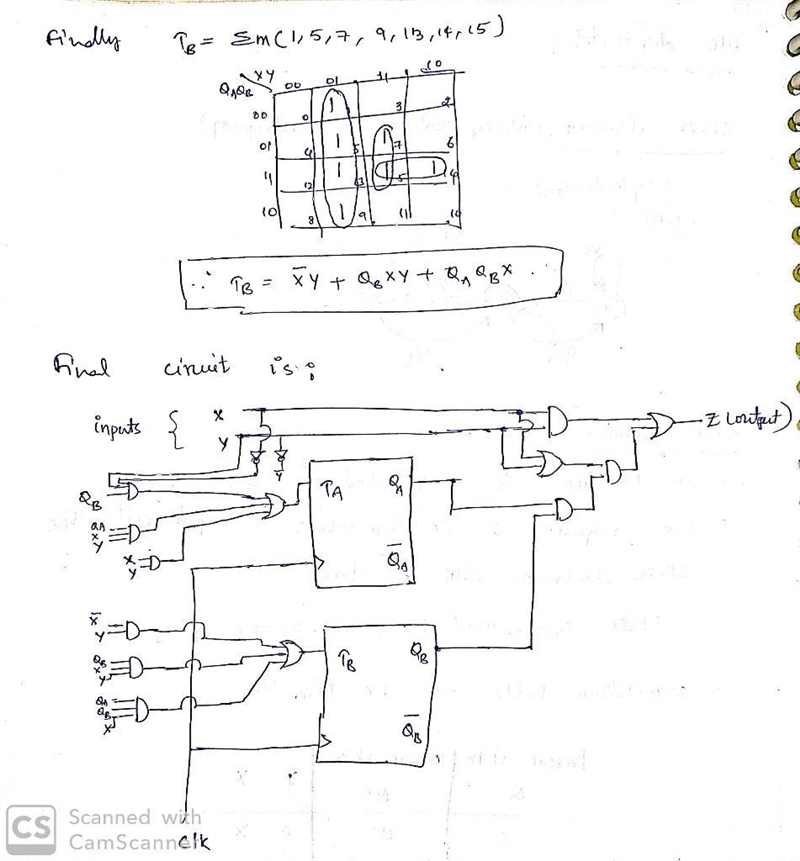 Finally T_B = Σm(1, 5, 7, 9, 13, 14, 15)
XY
Q_A Q_B 00 01 11 10
00 0 1 3 2
01 4 1 5 1 7 6
11 12 1 13 1 15 1 14
10 8 1 9 11 10
∴ T_B = X̅Y + Q_B XY + Q_A Q_B X
Final circuit is:
inputs { X
Y
Z (output)
Y̅
Q_B
T_A Q_A
Q_A
X
Y
X
Y
Q̅_A
X̅
Y
Q_B
X
Y
T_B Q_B
Q_A
Q_B
X
Q̅_B
clk
CS Scanned with
CamScanner